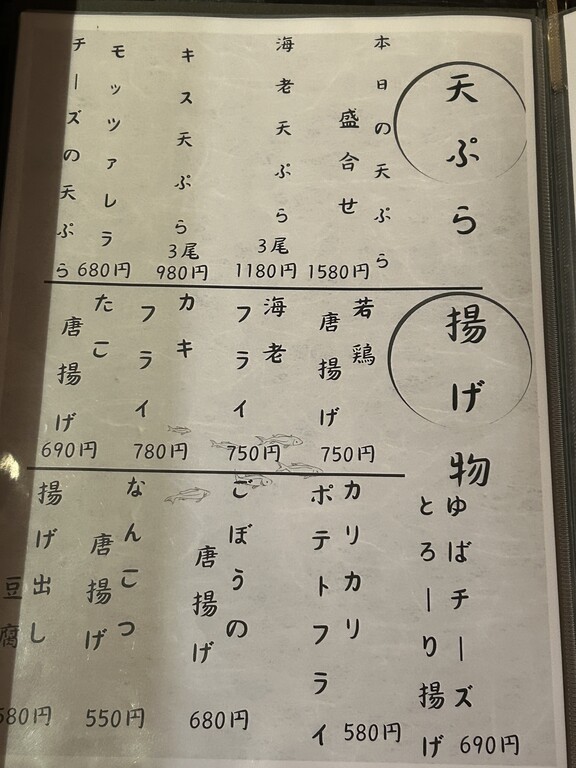 天ぷら
本日の天ぷら
盛合せ
1580円
海老天ぷら
3尾
1180円
キス天ぷら
3尾
980円
モッツァレラ
チーズの天ぷら
680円
揚げ物
若鶏
唐揚げ
750円
海老
フライ
750円
カキ
フライ
780円
たこ
唐揚げ
690円
ゆばチーズ
とろーり揚げ
690円
カリカリ
ポテトフライ
580円
ごぼうの
唐揚げ
680円
なんこつ
唐揚げ
550円
揚げ出し
豆腐
580円